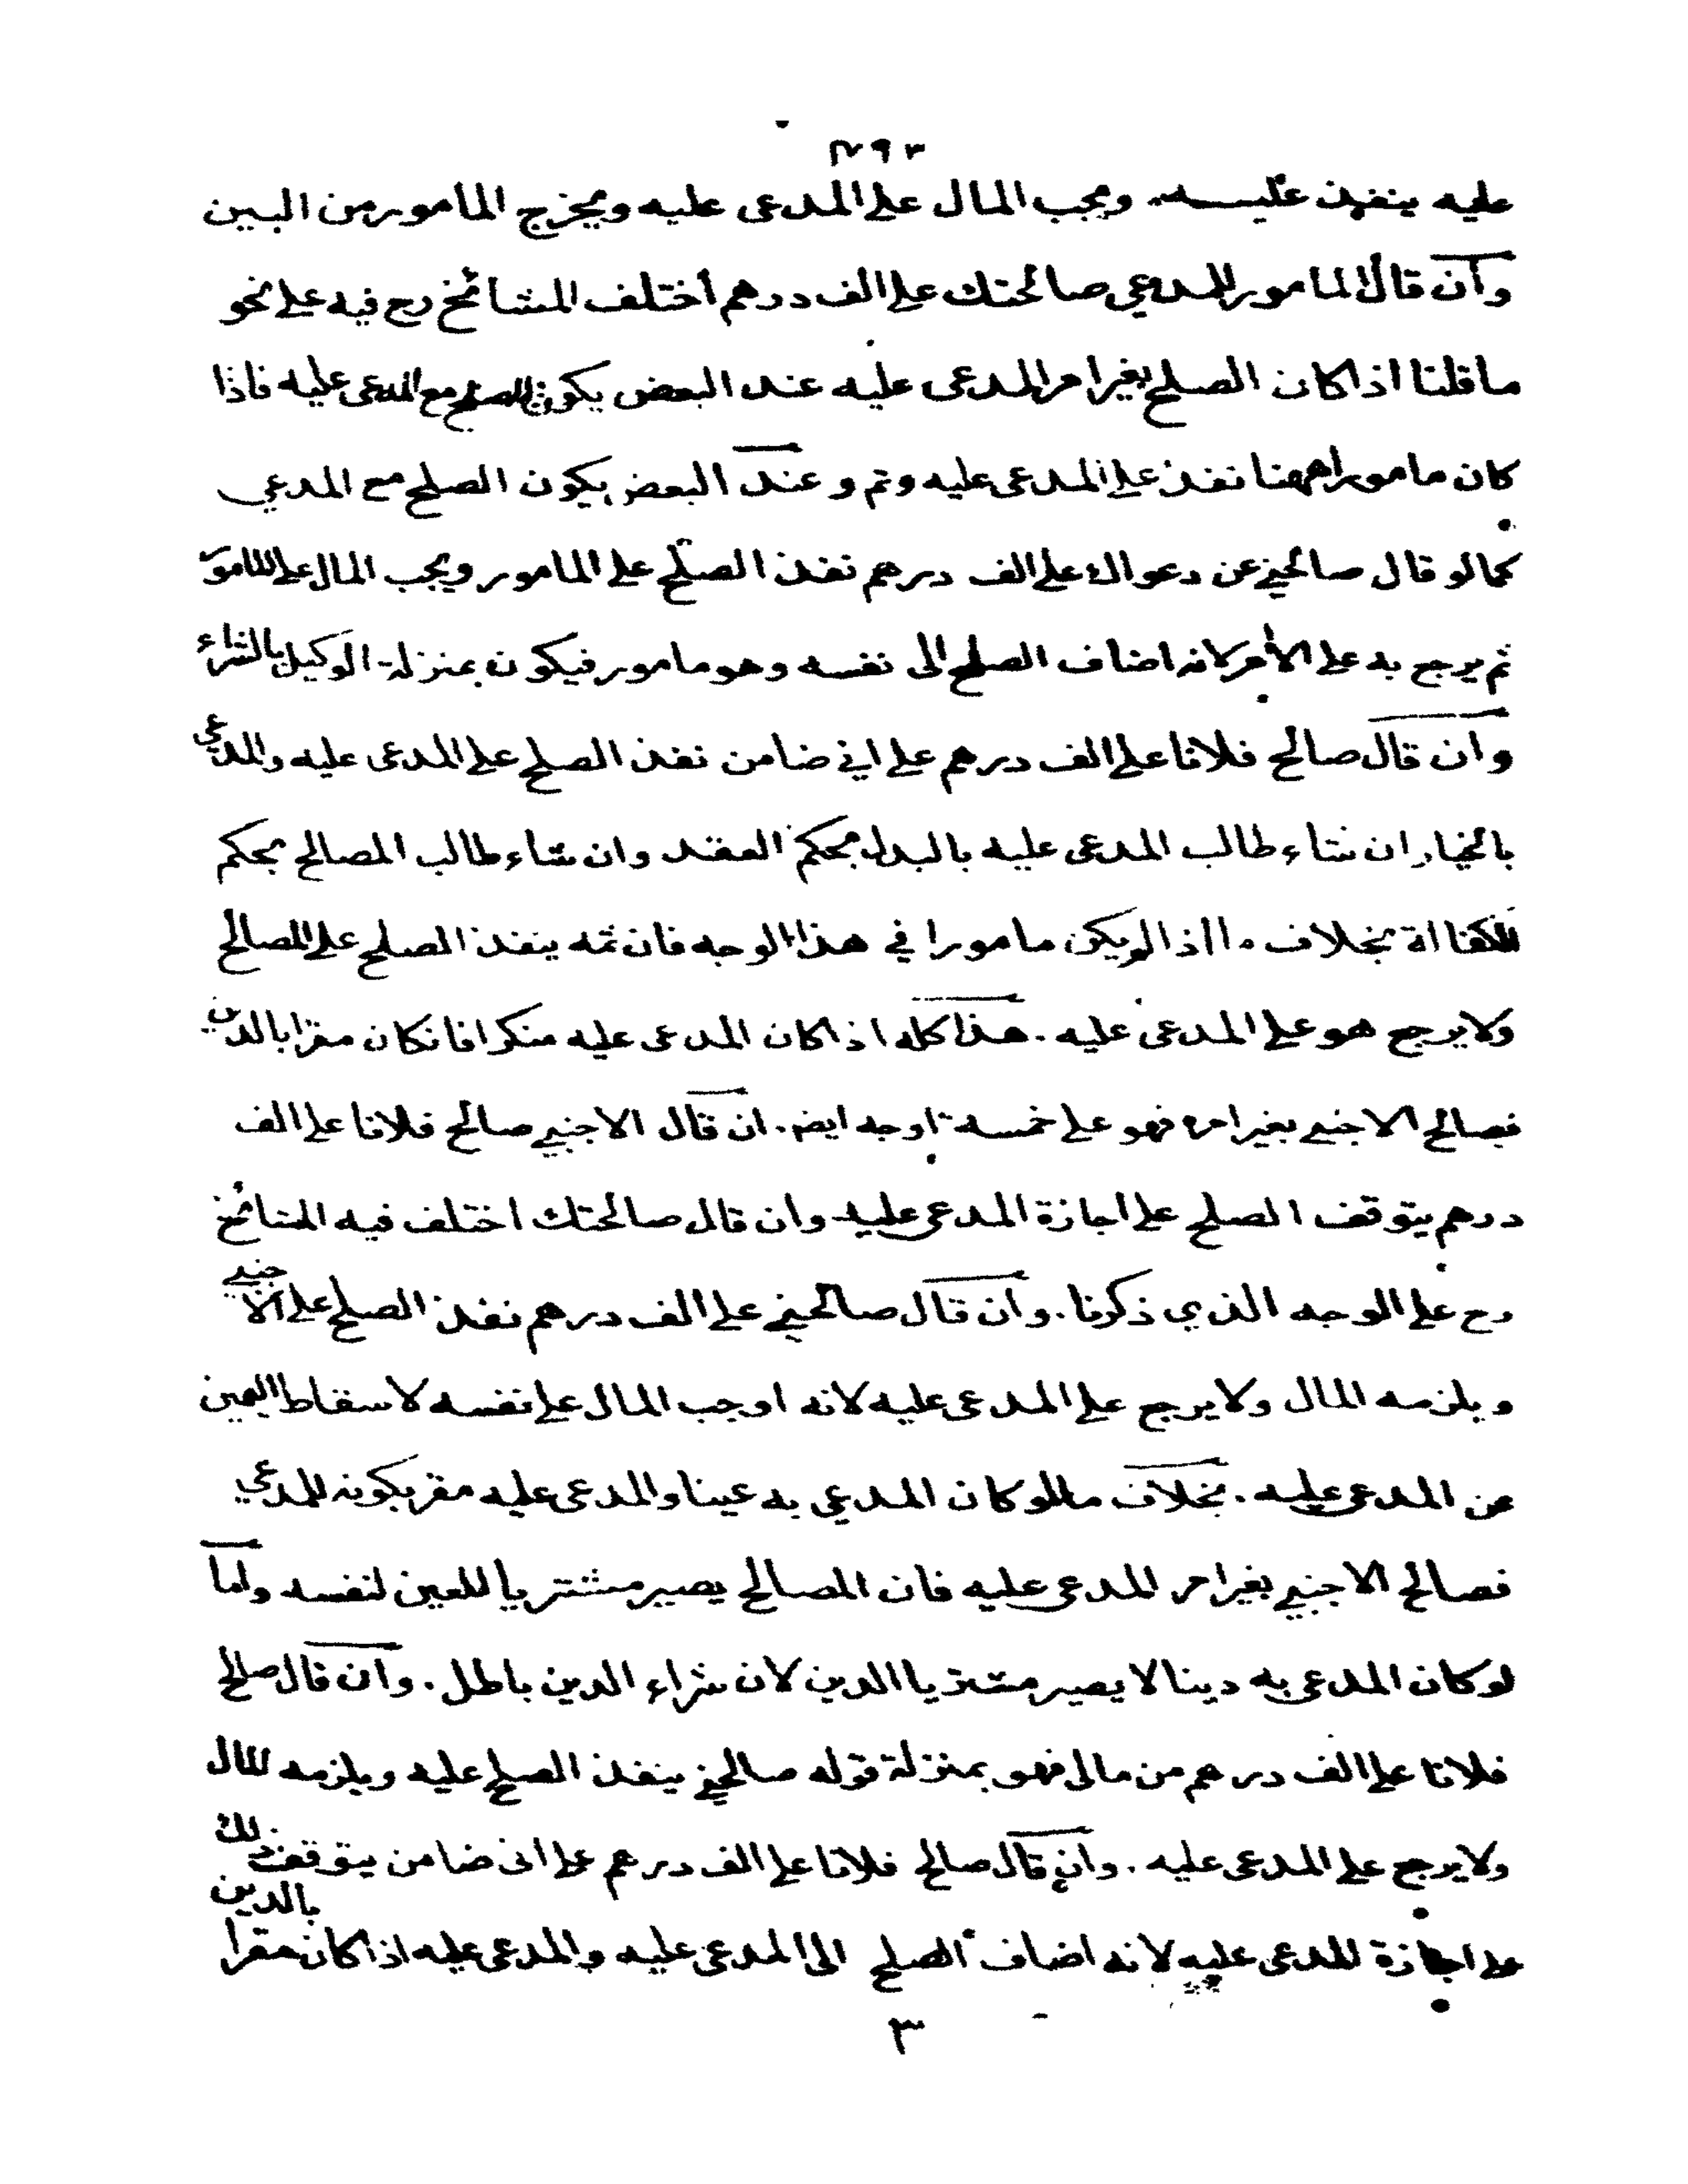 ٣٩٣
عليه ينفذ عليه ويجب المال على المدعى عليه ويخرج المامور من البين
وان قال المامور للمدعي صالحتك على الف درهم اختلف المشائخ رح فيه على نحو
ما قلنا اذا كان الصلح بغير امر المدعى عليه عند البعض يكون الصلح مع المدعى عليه فاذا
كان مامورا ههنا نفذ على المدعى عليه وتم وعند البعض يكون الصلح مع المدعي
كما لو قال صالحني عن دعواك على الف درهم نفذ الصلح على المامور ويجب المال على المامور
ثم يرجع به على الأمر لانه اضاف الصلح الى نفسه وهو مامور فيكون بمنزلة الوكيل بالشراء
وان قال صالح فلانا على الف درهم على اني ضامن نفذ الصلح على المدعى عليه والمدعي
بالخيار ان شاء طالب المدعى عليه بالبدل بحكم العقد وان شاء طالب المصالح بحكم
الكفالة بخلاف ما اذا لم يكن مامورا في هذا الوجه فان ثمه ينفذ الصلح على المصالح
ولا يرجع هو على المدعى عليه . هذا كله اذا كان المدعى عليه منكرا فانكان مقرا بالدين
فصالح الاجنبي بغير امره فهو على خمسة اوجه ايضا . ان قال الاجنبي صالح فلانا على الف
درهم يتوقف الصلح على اجازة المدعى عليه وان قال صالحتك اختلف فيه المشائخ
رح على الوجه الذي ذكرنا . وان قال صالحني على الف درهم نفذ الصلح على الاجنبي
ويلزمه المال ولا يرجع على المدعى عليه لانه اوجب المال على نفسه لاسقاط اليمين
عن المدعى عليه . بخلاف ما لو كان المدعي به عينا والمدعى عليه مقر بكونه للمدعي
فصالح الاجنبي بغير امر المدعى عليه فان المصالح يصير مشتريا للعين لنفسه واما
لو كان المدعى به دينا لا يصير مشتريا الدين لان شراء الدين باطل . وان قال صالح
فلانا على الف درهم من مالى فهو بمنزلة قوله صالحني ينفذ الصلح عليه ويلزمه المال
ولا يرجع على المدعى عليه . وان قال صالح فلانا على الف درهم على انى ضامن يتوقف ذلك
على اجازة المدعى عليه لانه اضاف الصلح الى المدعى عليه والمدعى عليه اذا كان مقرا بالدين
٣